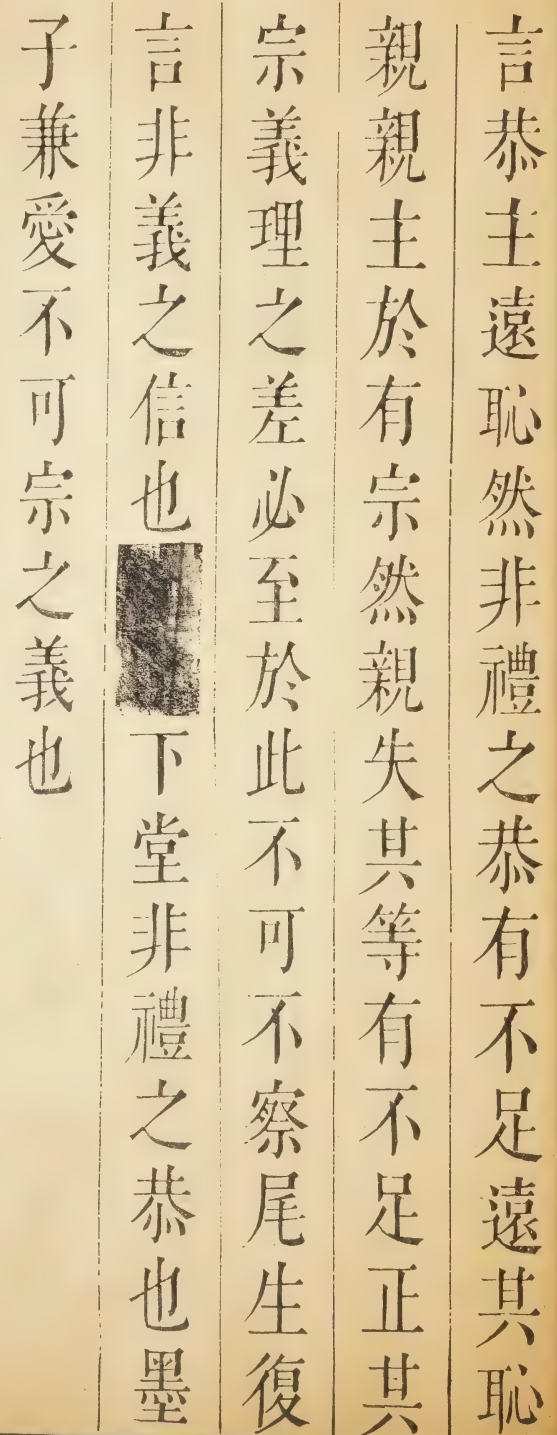 言恭主遠恥然非禮之恭有不足遠其恥
親親主於有宗然親失其等有不足正其
宗義理之差必至於此不可不察尾生復
言非義之信也下堂非禮之恭也墨
子兼愛不可宗之義也